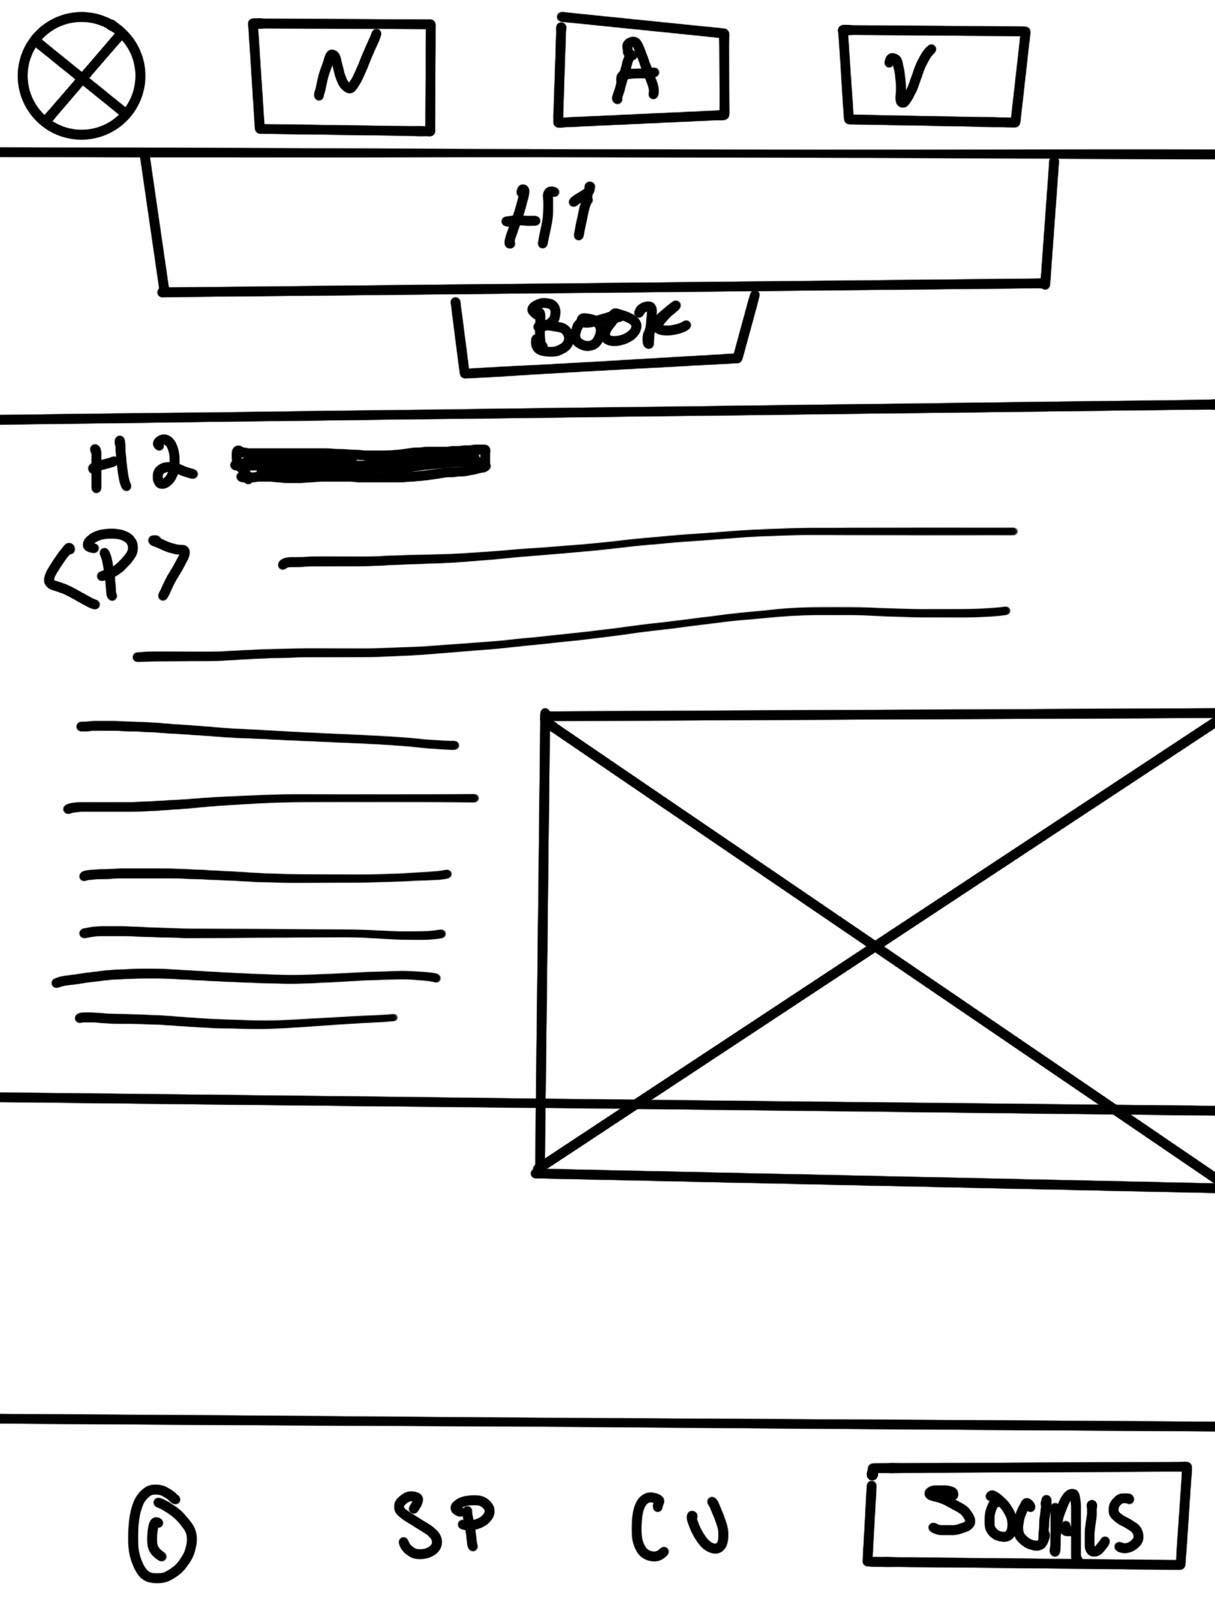 N A V
H1
BOOK
H2
<P>
© SP CU SOCIALS